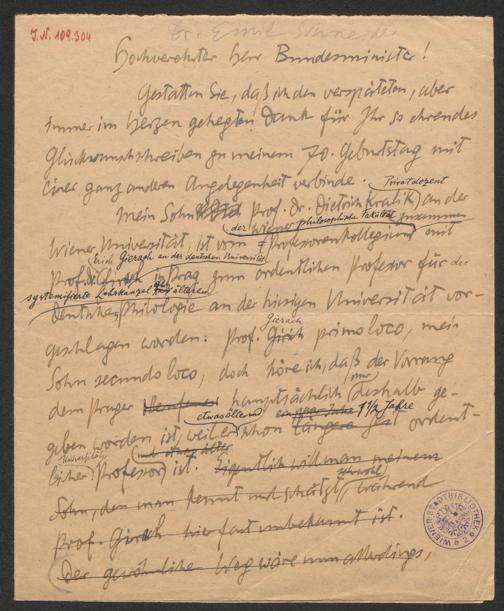 I.N. 109.304
Dr. Emil Schneider
Hochverehrter Herr Bundesminister!
Gestatten Sie, daß ich den verspäteten, aber
immer im Herzen gehegten Dank für Ihr so ehrendes
Glückwunschschreiben zu meinem 70. Geburtstag mit
einer ganz anderen Angelegenheit verbinde.
Privatdozent
Mein Sohn Prof. Dr. Dietrich Kralik an der
der Wiener philosophischen Fakultät zusammen
Wiener Universität, ist vom Professorenkollegium mit
Erich Gierach an der deutschen Universität
Prof. in Prag zum ordentlichen Professor für die
systemisierte Lehrkanzel der älteren
deutschen Philologie an der hiesigen Universität vor-
geschlagen worden: Prof. Gierach primo loco, mein
Sohn secundo loco, doch höre ich, daß der Vorrang
dem Prager hauptsächlich nur deshalb ge-
etwas älter und 1½ Jahre
geben worden ist, weil er schon längere Zeit ordent-
Universitäts und etwas älter
licher Professor ist. Eigentlich will man meinen
Sohn, den man kennt und schätzt, während
Prof. Gierach hier fast unbekannt ist.
Der gewöhnliche Weg wäre nun allerdings,
WIENER STADTBIBLIOTHEK